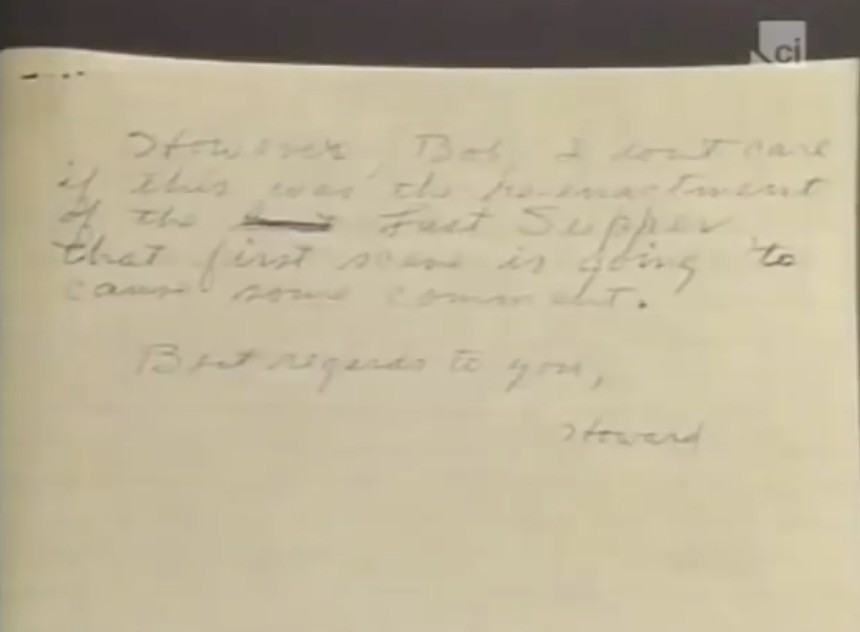 ci
However Bob, I dont care
if this was the re-enactment
of the Last Supper
that first scene is going to
cause some comment.
Best regards to you,
Howard